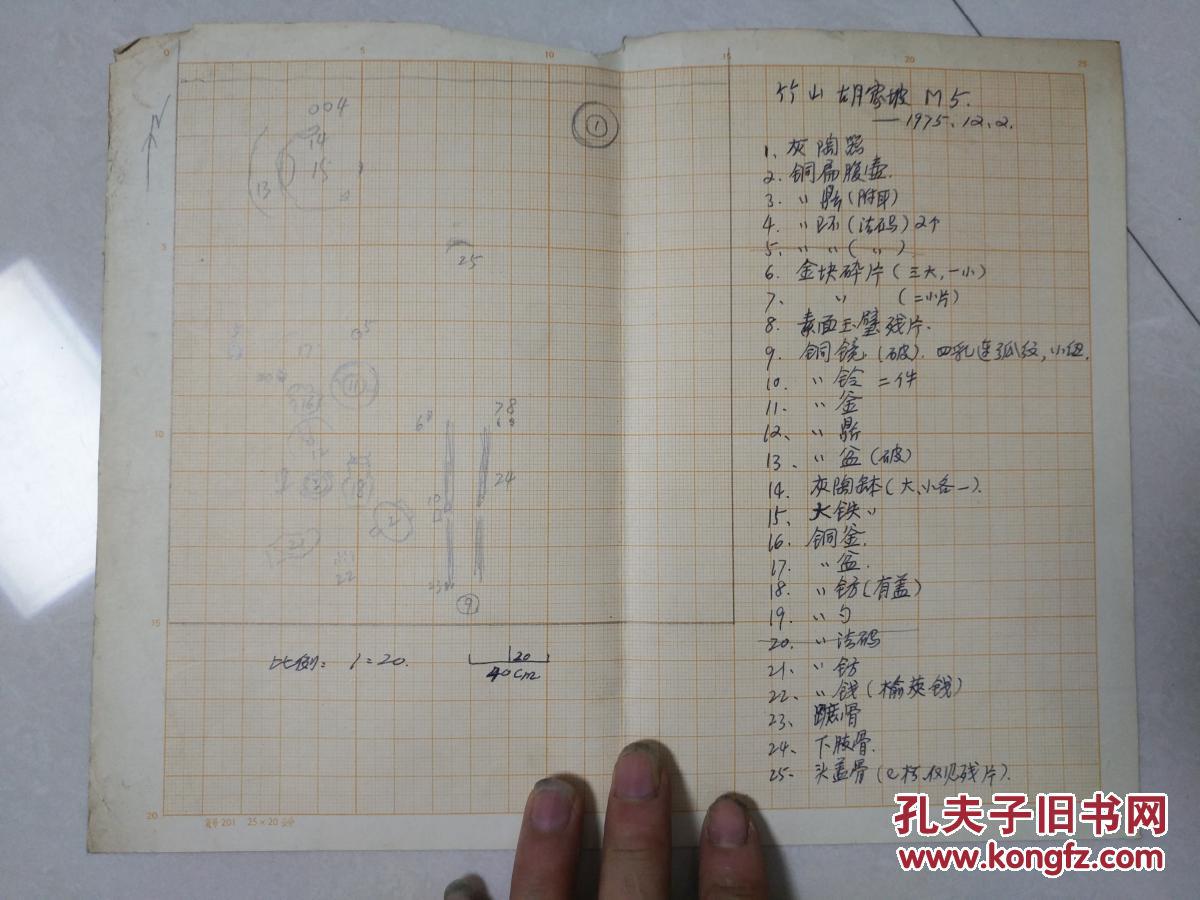 0 5 10 15 20 25
竹山 胡家坡 M5.
—1975.12.2.
1、灰陶器
2. 铜扁腹壶.
3. 〃 鼎(附耳)
4. 〃 环(法码)2个
5. 〃 〃(〃)
6. 金块碎片(三大,一小)
7、 〃 (二小片)
8. 素面玉璧残片.
9. 铜镜(破). 四乳连弧纹,小钮.
10. 〃 铃 二件
11. 〃 釜
12、 〃 鼎
13、 〃 盆(破)
14. 灰陶钵(大、小各一).
15、 大铁 〃
16. 铜釜.
17. 〃 盆.
18. 〃 钫(有盖)
19. 〃 勺
20. 〃 法码
21、 〃 钫
22、 〃 钱(榆荚钱)
23、 骨
24、 下肢骨.
25. 头盖骨(已朽,仅见残片).
N
004
14
13
15
1
25
05
17
16
11
68
78
24
18
2
22
9
10
15
20
比例: 1=20.
20
40cm
201 25×20
孔夫子旧书网
www.kongfz.com